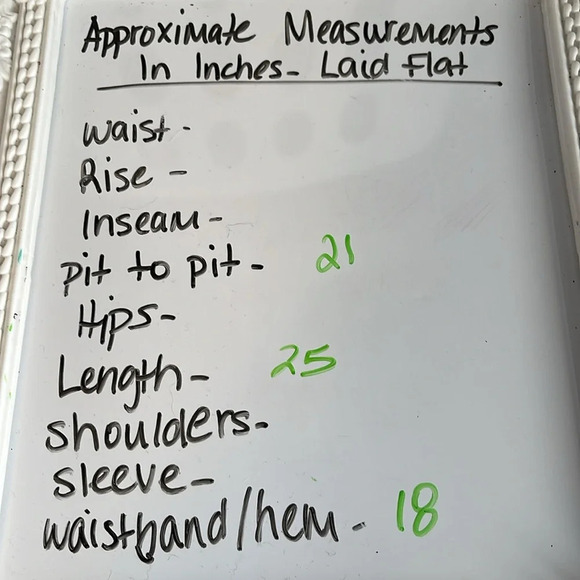 Approximate Measurements
In Inches- Laid Flat
waist-
Rise -
Inseam-
pit to pit- 21
Hips-
Length- 25
shoulders-
sleeve-
waistband/hem- 18